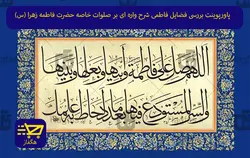 پاورپوینت بررسی فضایل فاطمی شرح واژه ای بر صلوات خاصه حضرت فاطمه زهرا (س)
اللهم صل علی فاطمة و ابیها و بعلها و بنیها
و السر المستودع فیها بعدد ما احاط به علمک
هگفاز